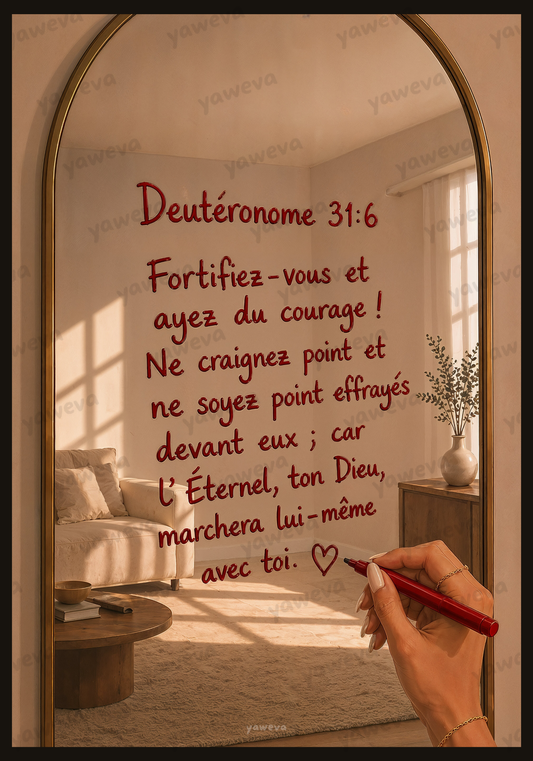 Deutéronome 31:6
Fortifiez-vous et
ayez du courage !
Ne craignez point et
ne soyez point effrayés
devant eux ; car
l'Éternel, ton Dieu,
marchera lui-même
avec toi. ♡
yaweva